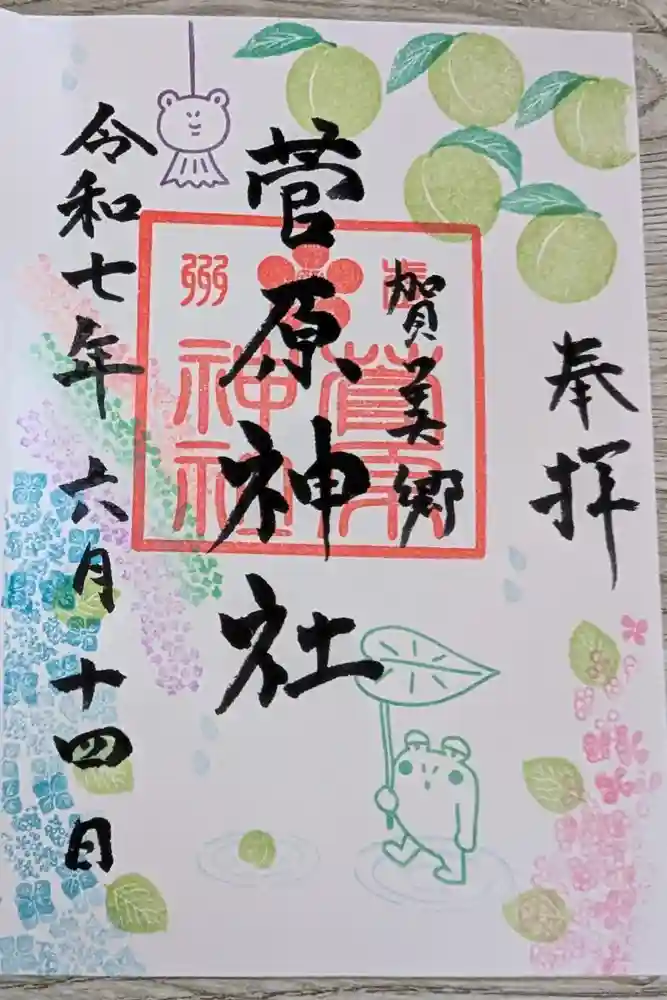 奉拝
賀美郷
菅原神社
令和七年六月十四日
菅原
神社